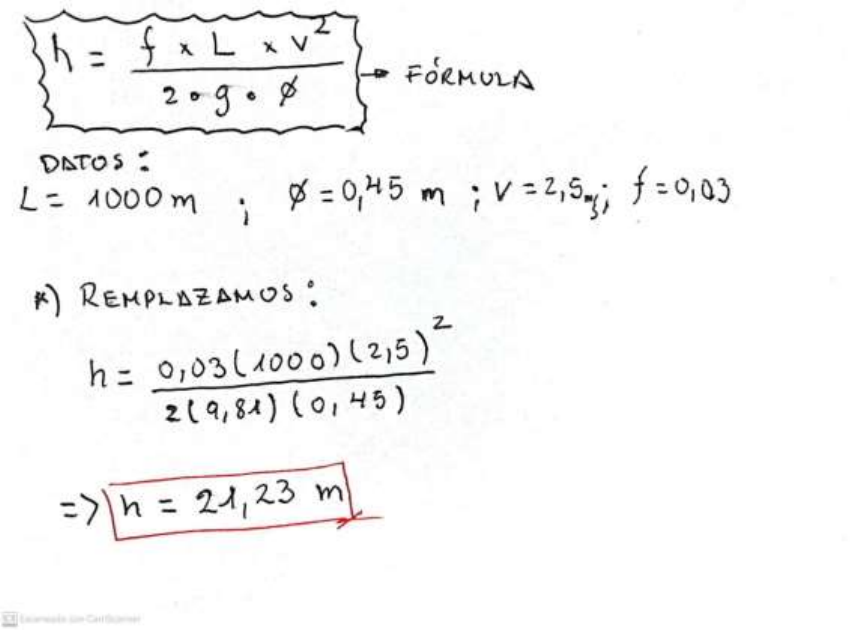 h = f x L x v²
2 • g • ∅
→ FÓRMULA
DATOS:
L = 1000 m ; ∅ = 0,45 m ; V = 2,5 m/s; f = 0,03
*) REMPLAZAMOS:
h = 0,03(1000)(2,5)²
2(9,81)(0,45)
=> h = 21,23 m
Escaneado con CamScanner